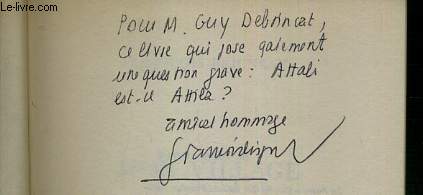 Pour M. Guy Debrincat,
ce livre qui pose gaiement
une question grave : Attali
est-ce Attila ?
amical hommage